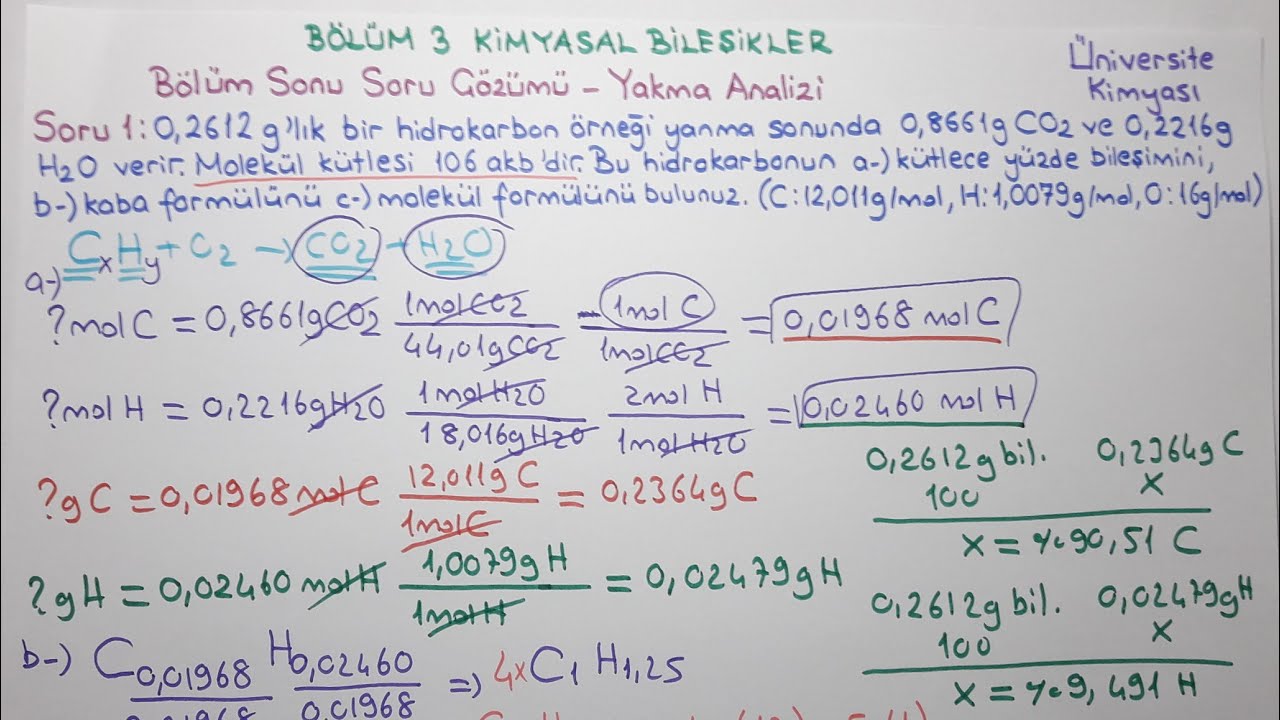 BÖLÜM 3 KİMYASAL BİLEŞİKLER
Üniversite
Kimyası
Bölüm Sonu Soru Gözümü - Yakma Analizi
Soru 1: 0,2612 g'lık bir hidrokarbon örneği yanma sonunda 0,8661g CO2 ve 0,2216g
H2O verir. Molekül kütlesi 106 akb'dir. Bu hidrokarbonun a-) kütlece yüzde bileşimini,
b-) kaba formülünü c-) molekül formülünü bulunuz. (C:12,011g/mol, H:1,0079g/mol, O:16g/mol)
a-) CxHy + C2 → CO2 + H2O
?mol C = 0,8661gCO2 1molCO2/44,01gCO2 1mol C/1molCO2 = 0,01968 mol C
?mol H = 0,2216gH2O 1molH2O/18,016gH2O 2mol H/1molH2O = 0,02460 mol H
?g C = 0,01968 mol C 12,011g C/1mol C = 0,2364g C
?g H = 0,02460 mol H 1,0079g H/1mol H = 0,02479g H
0,2612g bil. 0,2364g C
100 x
x = %90,51 C
0,2612g bil. 0,02479g H
100 x
x = %9,491 H
b-) C0,01968/0,01968 H0,02460/0,01968 ⇒ 4x C1 H1,25